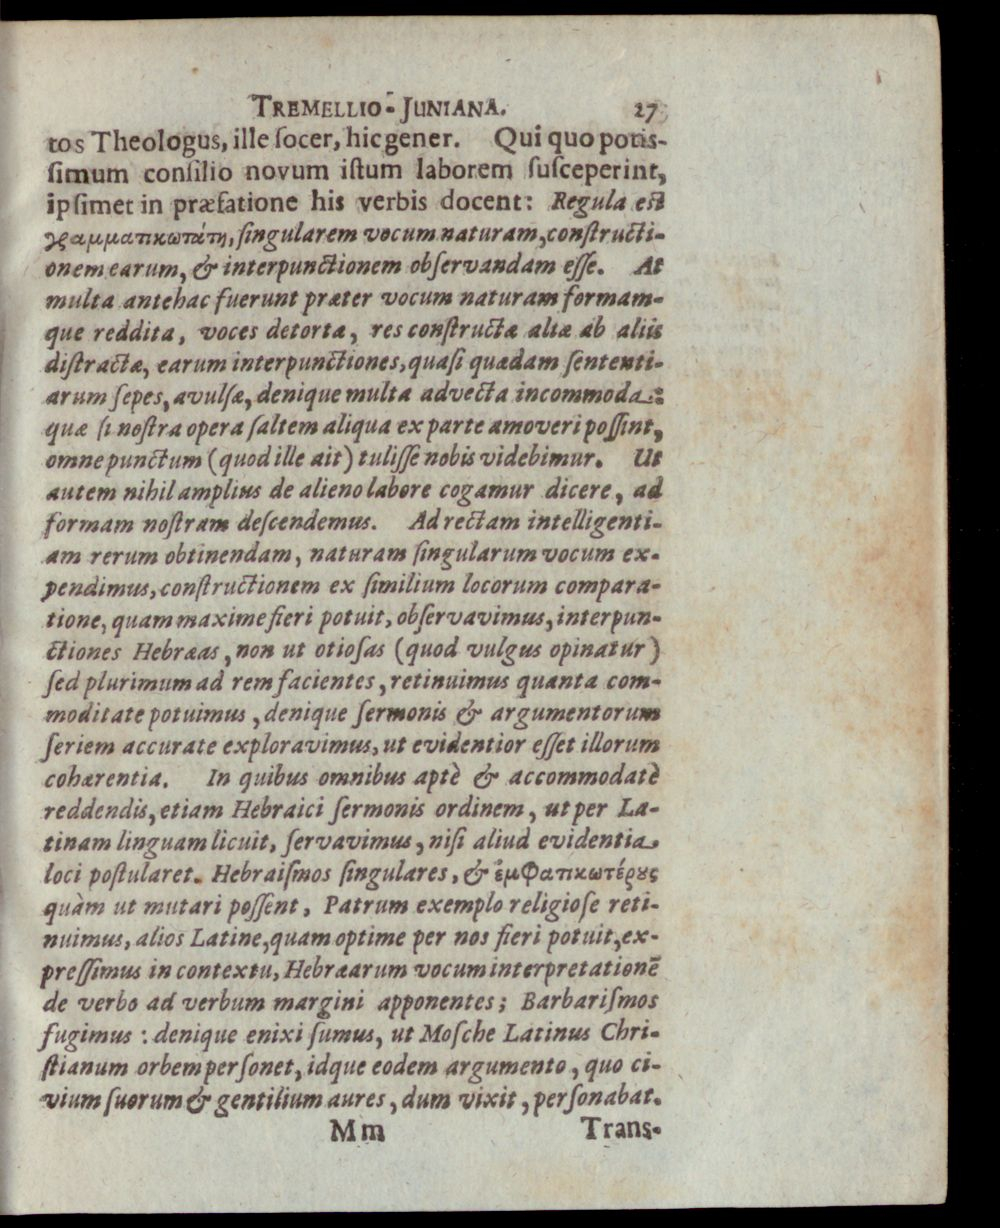 TREMELLIO-JUNIANA. 27
tos Theologus, ille ſocer, hic gener. Qui quo potiſ-
ſimum conſilio novum iſtum laborem ſuſceperint,
ipſimet in præfatione his verbis docent: Regula eſt
γραμματικωτάτη, ſingularem vocum naturam, conſtructi-
onem earum, & interpunctionem obſervandam eſſe. At
multa antehac fuerunt præter vocum naturam formam-
que reddita, voces detortæ, res conſtructæ aliæ ab aliis
diſtractæ, earum interpunctiones, quaſi quædam ſententi-
arum ſepes, avulſæ, denique multa advecta incommoda:
quæ ſi noſtra opera ſaltem aliqua ex parte amoveri poſſint,
omne punctum (quod ille ait) tuliſſe nobis videbimur. Ut
autem nihil amplius de alieno labore cogamur dicere, ad
formam noſtram deſcendemus. Ad rectam intelligenti-
am rerum obtinendam, naturam ſingularum vocum ex-
pendimus, conſtructionem ex ſimilium locorum compara-
tione, quam maxime fieri potuit, obſervavimus, interpun-
ctiones Hebræas, non ut otioſas (quod vulgus opinatur)
ſed plurimum ad rem facientes, retinuimus quanta com-
moditate potuimus, denique ſermonis & argumentorum
ſeriem accurate exploravimus, ut evidentior eſſet illorum
cohærentia. In quibus omnibus aptè & accommodatè
reddendis, etiam Hebraici ſermonis ordinem, ut per La-
tinam linguam licuit, ſervavimus, niſi aliud evidentia
loci poſtularet. Hebraiſmos ſingulares, & ἐμφατικωτέρȣς
quàm ut mutari poſſent, Patrum exemplo religioſe reti-
nuimus, alios Latine, quam optime per nos fieri potuit, ex-
preſſimus in contextu, Hebræarum vocum interpretationē
de verbo ad verbum margini apponentes; Barbariſmos
fugimus: denique enixi ſumus, ut Moſche Latinus Chri-
ſtianum orbem perſonet, idque eodem argumento, quo ci-
vium ſuorum & gentilium aures, dum vixit, perſonabat.
Mm Trans-